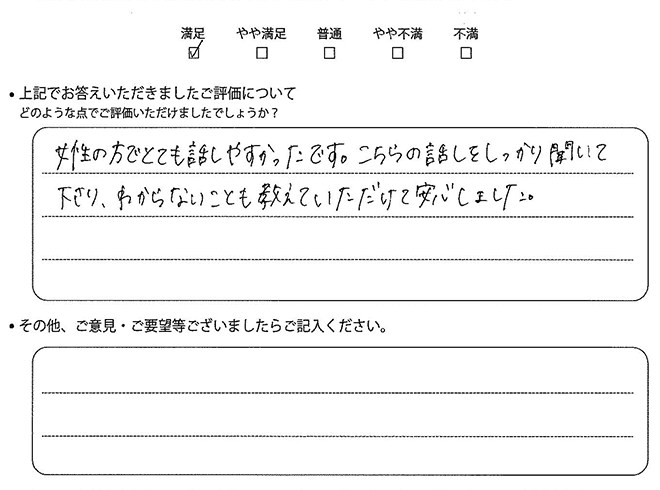 満足 やや満足 普通 やや不満 不満
☑ □ □ □ □
• 上記でお答えいただきましたご評価について
どのような点でご評価いただけましたでしょうか？
女性の方でとても話しやすかったです。こちらの話しをしっかり聞いて
下さり、わからないことも教えていただけて安心しました。
• その他、ご意見・ご要望等ございましたらご記入ください。